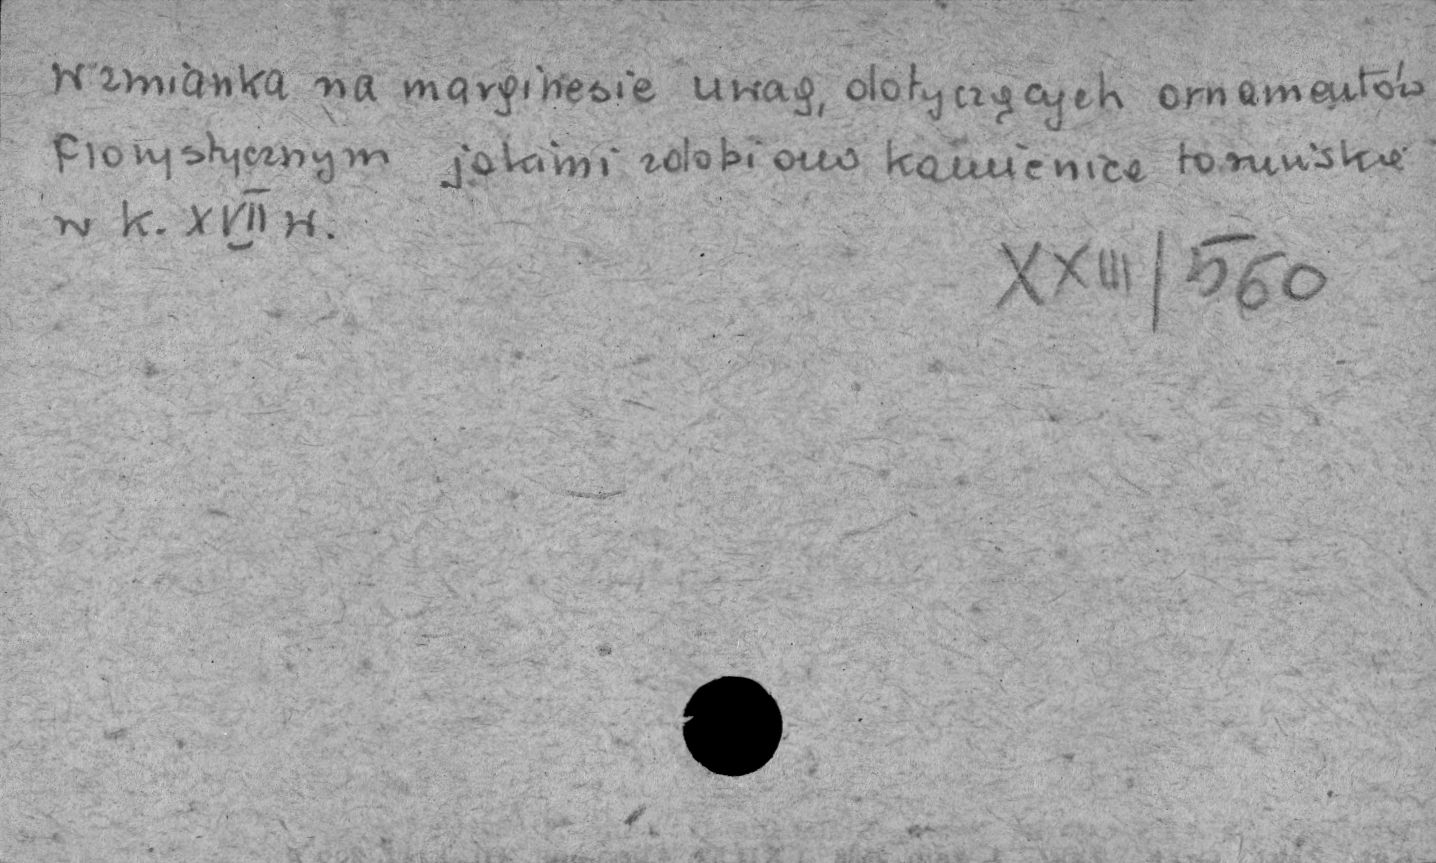 Wzmianka na marginesie uwag, dotyczących ornamentów
florystycznym jakimi zdobiono kamienice toruńskie
w k. XVII w.
XXIII/560